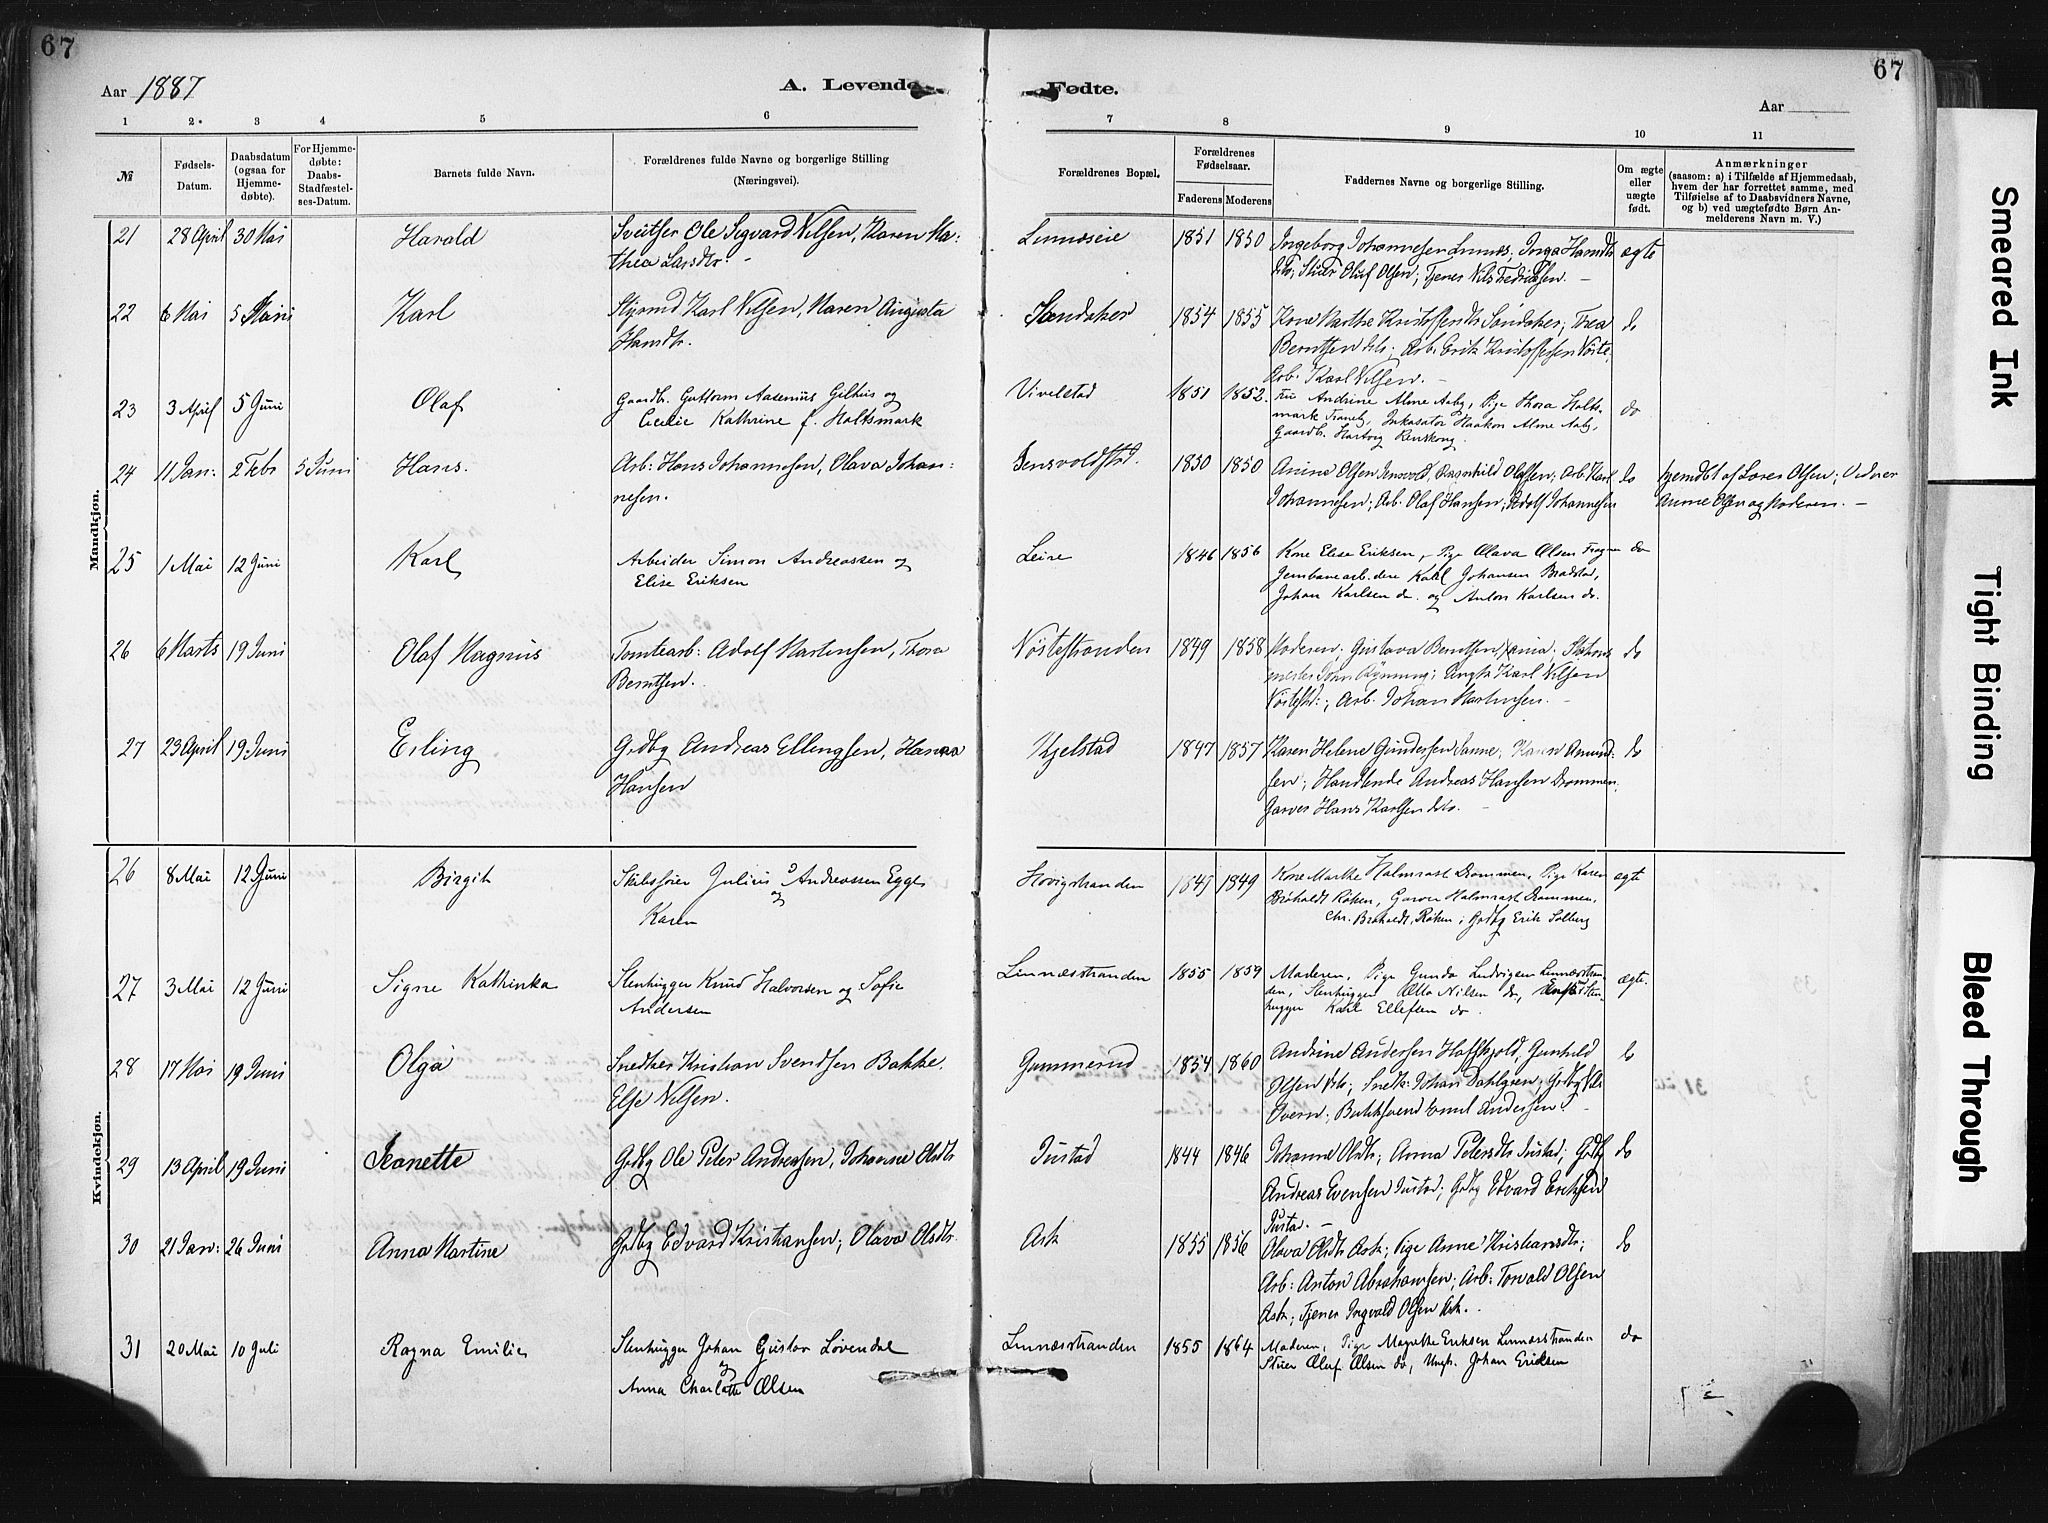 67
67
Aar 1887
A. Levende
Fødte.
Aar
1 2. 3 4 5 6 7 8 9 10 11
№
Fødsels-
Datum.
Daabsdatum
(ogsaa for
Hjemme-
døbte).
For Hjemme-
døbte:
Daabs-
Stadfæstel-
ses-Datum.
Barnets fulde Navn.
Forældrenes fulde Navne og borgerlige Stilling
(Næringsvei).
Forældrenes Bopæl.
Forældrenes
Fødselsaar.
Faderens Moderens
Faddernes Navne og borgerlige Stilling.
Om ægte
eller
uægte
født.
Anmærkninger
(saasom: a) i Tilfælde af Hjemmedaab,
hvem der har forrettet samme, med
Tilføielse af to Daabsvidners Navne,
og b) ved uægtefødte Børn An-
melderens Navn m. V.)
Mandkjøn.
21 28 April 30 Mai Harald Sveitser Ole Sigvard Nilsen, Karen Ma-
thea Larsdtr. -
Linnæseie 1851 1850 Ingeborg Johannesen Linnæs, Inga Hansdtr ægte
dtr; Stuer Oluf Olsen; Tjener Nils Fredriksen. -
22 6 Mai 5 Juni Karl Styrmd Karl Nilsen, Maren Augusta
Hansdtr.
1854 1855 Kone Marthe Kristoffersdtr ; Thea do
Berntsen ; Arb. Erik Kristoffersen Nøste.
Arb. Karl Nilsen. -
23 3 April 5 Juni Olaf Gaardbr. Guttorm Aasenius Gilhus og
Cecilie Kathrine f. Holtsmark
Vivelstad 1851 1852 Fru Andrine Alme Aaby, Pige Thora Holts- do
mark Tranby, Inkasator Haakon Alme Aaby,
Gaardb. Hartvig Renskoug.
24 11 Jan: 2 Febr 5 Juni Hans. Arb: Hans Johannesen, Olava Johan-
nesen.
Jensvoldstrd. 1850 1850 Anine Olsen Jensvold, Ragnhild Olafsen; Arb. Karl do
Johannesen; Arb. Olaf Hansen; Adolf Johannesen
hjemdbt af Lovis Olsen; Vidner
Anine Olsen og Moderen. -
25 1 Mai 12 Juni Karl Arbeider Simon Andreassen og
Elise Eriksen
Leire 1846 1856 Kone Elise Eriksen, Pige Olava Olsen do
Jernbanearb.dere Karl Johansen Bradstad,
Johan Karlsen do. og Anton Karlsen do.
26 6 Marts 19 Juni Olaf Magnus Tomtearb: Adolf Martensen, Thora
Berntsen.
Nøstestranden 1849 1858 Moderen; Gustava Berntsen ; Stations do
mester John Rynning; Ungk. Karl Nilsen
Nøstestrd:; Arb. Johan Martensen. -
27 23 April 19 Juni Erling Grdbg Andreas Ellingsen, Hanna
Hansen
Kjelstad 1847 1857 Karen Helene Gundersen Sanne; Karen Amund- do
sen; Handlende Andreas Hansen Drammen,
Garver Hans Karlsen dsto. -
Kvindekjøn.
26 8 Mai 12 Juni Birgit Skibsfører Julius Andreassen Egge
og
Karen
Hovigstranden 1849 1849 Kone Marthe Halmrast Drammen, Pige Karen ægte
Brøholdt Røken, Garver Halmrast Drammen,
Chr. Brøholdt, Røken; Grdbg Erik Solberg
27 3 Mai 12 Juni Signe Kathinka Stenhugger Knud Halvorsen og Sofie
Andersen
Linnæsstranden 1855 1859 Moderen, Pige Gunda Ludvigsen Linnæsstran- ægte.
den, Stenhugger Otto Nilsen do, Sten-
hugger Karl Ellefsen do
28 17 Mai 19 Juni Olga Snedker Kristian Svendsen Bakke.
Else Nilsen.
Gunnerud 1854 1860 Andrine Andersen Haffskjold, Gunhild do
Olsen dsto; Snedk: Johan Dahlgren;
Overn; Emil Andersen. -
29 13 April 19 Juni Jeanette Grdbg Ole Peter Andreasen, Johanne Olsdtr
Justad 1844 1846 Johanne Olsdtr; Anna Petersdtr Justad; Grdbg do
Andreas Evensen Justad; Grdbg Edvard Eriksen
Justad. -
30 21 Jan: 26 Juni Anna Martine Grdbg Edvard Kristiansen; Olava Olsdtr.
Ask 1855 1856 Olava Olsdtr Ask; Pige Anne Kristiansdtr; do
Arb: Anton Abrahamsen; Arb: Torvald Olsen
Ask; Tjener Ingvald Olsen Ask.
31 20 Mai 10 Juli Ragna Emilie Stenhugger Johan Gustav Løvendal
og
Anna Charlotte Olsen
Linnæsstranden 1855 1864 Moderen, Pige Magrethe Eriksen Linnæsstranden do
Stuer Olaf Olsen do, Ungk. Johan Eriksen
Smeared Ink
Tight Binding
Bleed Through